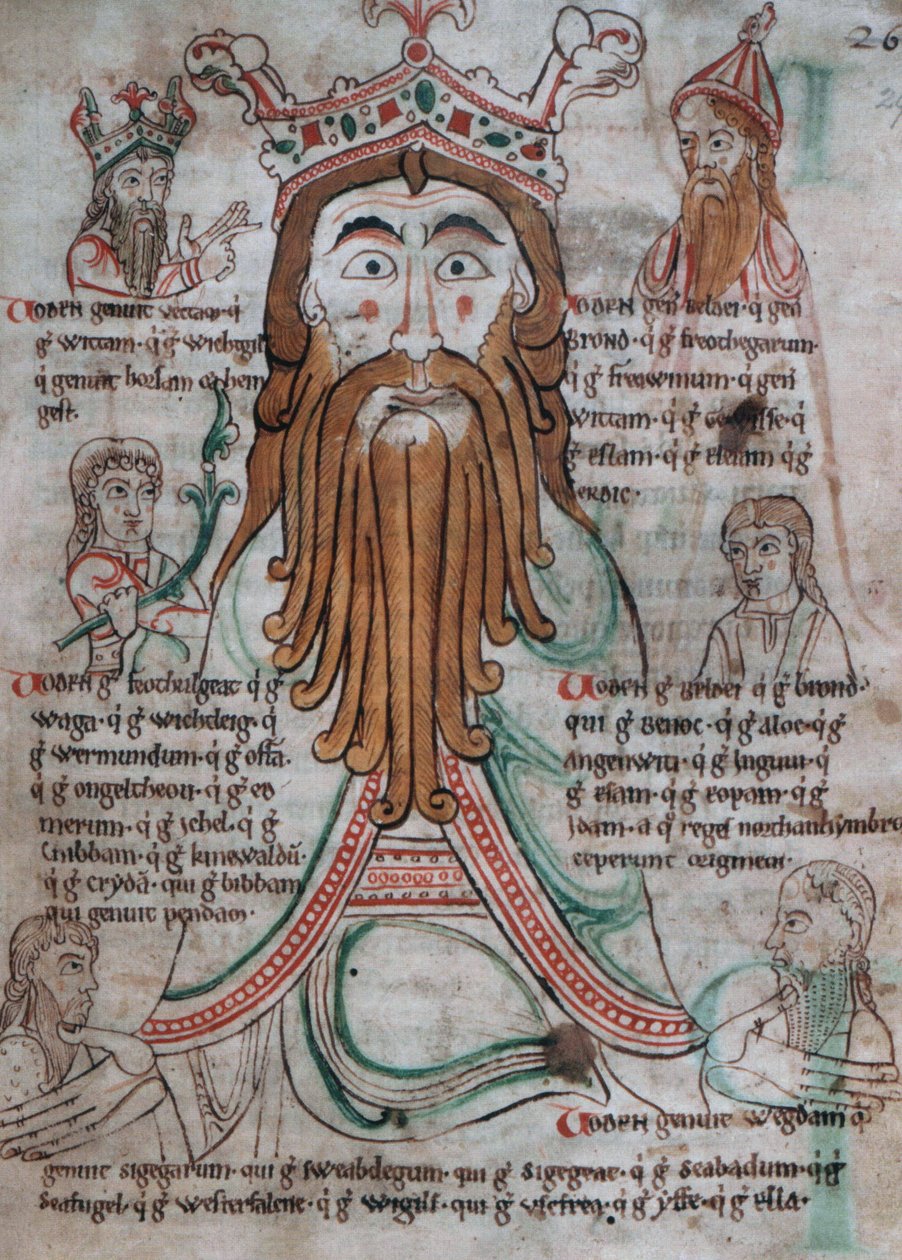 26
Uoden genuit vectam· q̇
g̊ wittam· q̇ g̊ wichtgil
q̇ genuit horsam et hen
gest·
Uoden gen̄ beldei· q̇ gen̄
brond· q̇ g̊ freothegarum·
q̇ g̊ freawinum· q̇ gen̄
wittam· q̇ g̊ gewisse· q̇
g̊ eslam· q̇ g̊ elesam q̇ g̊
cerdic·
Uoden g̊ freothulgeat q̇ g̊
waga· q̇ g̊ wichtleig· q̇
g̊ wermundum· q̇ g̊ offā·
q̇ g̊ ongeltheou· q̇ g̊ eo
merum· q̇ g̊ ichel· q̇ g̊
cnibbam· q̇ g̊ kinewaldū·
q̇ g̊ crẏdā· qui g̊ bibbam
qui genuit pendam·
Uoden g̊ beldei q̇ g̊ brond·
qui g̊ benoc· q̇ g̊ aloc· q̇ g̊
angenwit· q̇ g̊ inguur· q̇
g̊ esam· q̇ g̊ eopam· q̇ g̊
idam· a q̊ reges northanhymbro
ceperunt originem·
Uoden genuit wegdam q̇
genuit sigegarum· qui g̊ sweabdegum· qui g̊ sigegeat· q̇ g̊ seabadum· q̇ g̊
seafugel· q̇ g̊ westerfalcne· q̇ g̊ wigilf· qui g̊ uscfrea· q̇ g̊ ẏffe· q̇ g̊ ella·